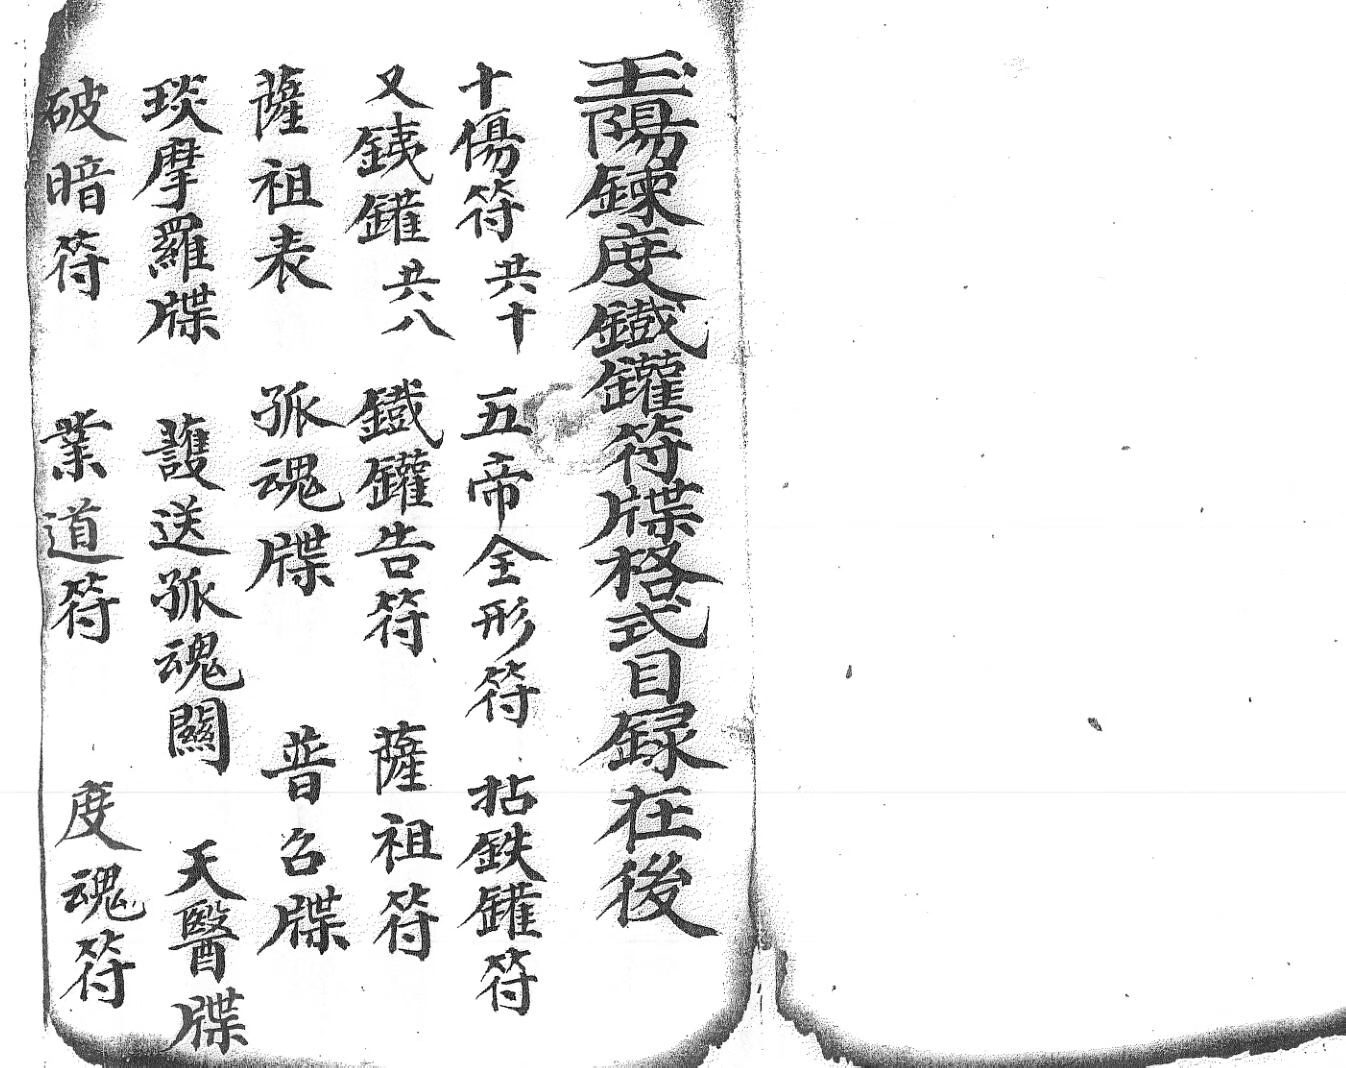 玉陽鍊度鐵罐符牒格式目録在後
十傷符 共十 五帝全形符 拈鉄罐符
又銕罐 共八 鐵罐告符 薩祖符
薩祖表 孤魂牒 普召牒
琰摩羅牒 護送孤魂關 天醫牒
破暗符 業道符 度魂符